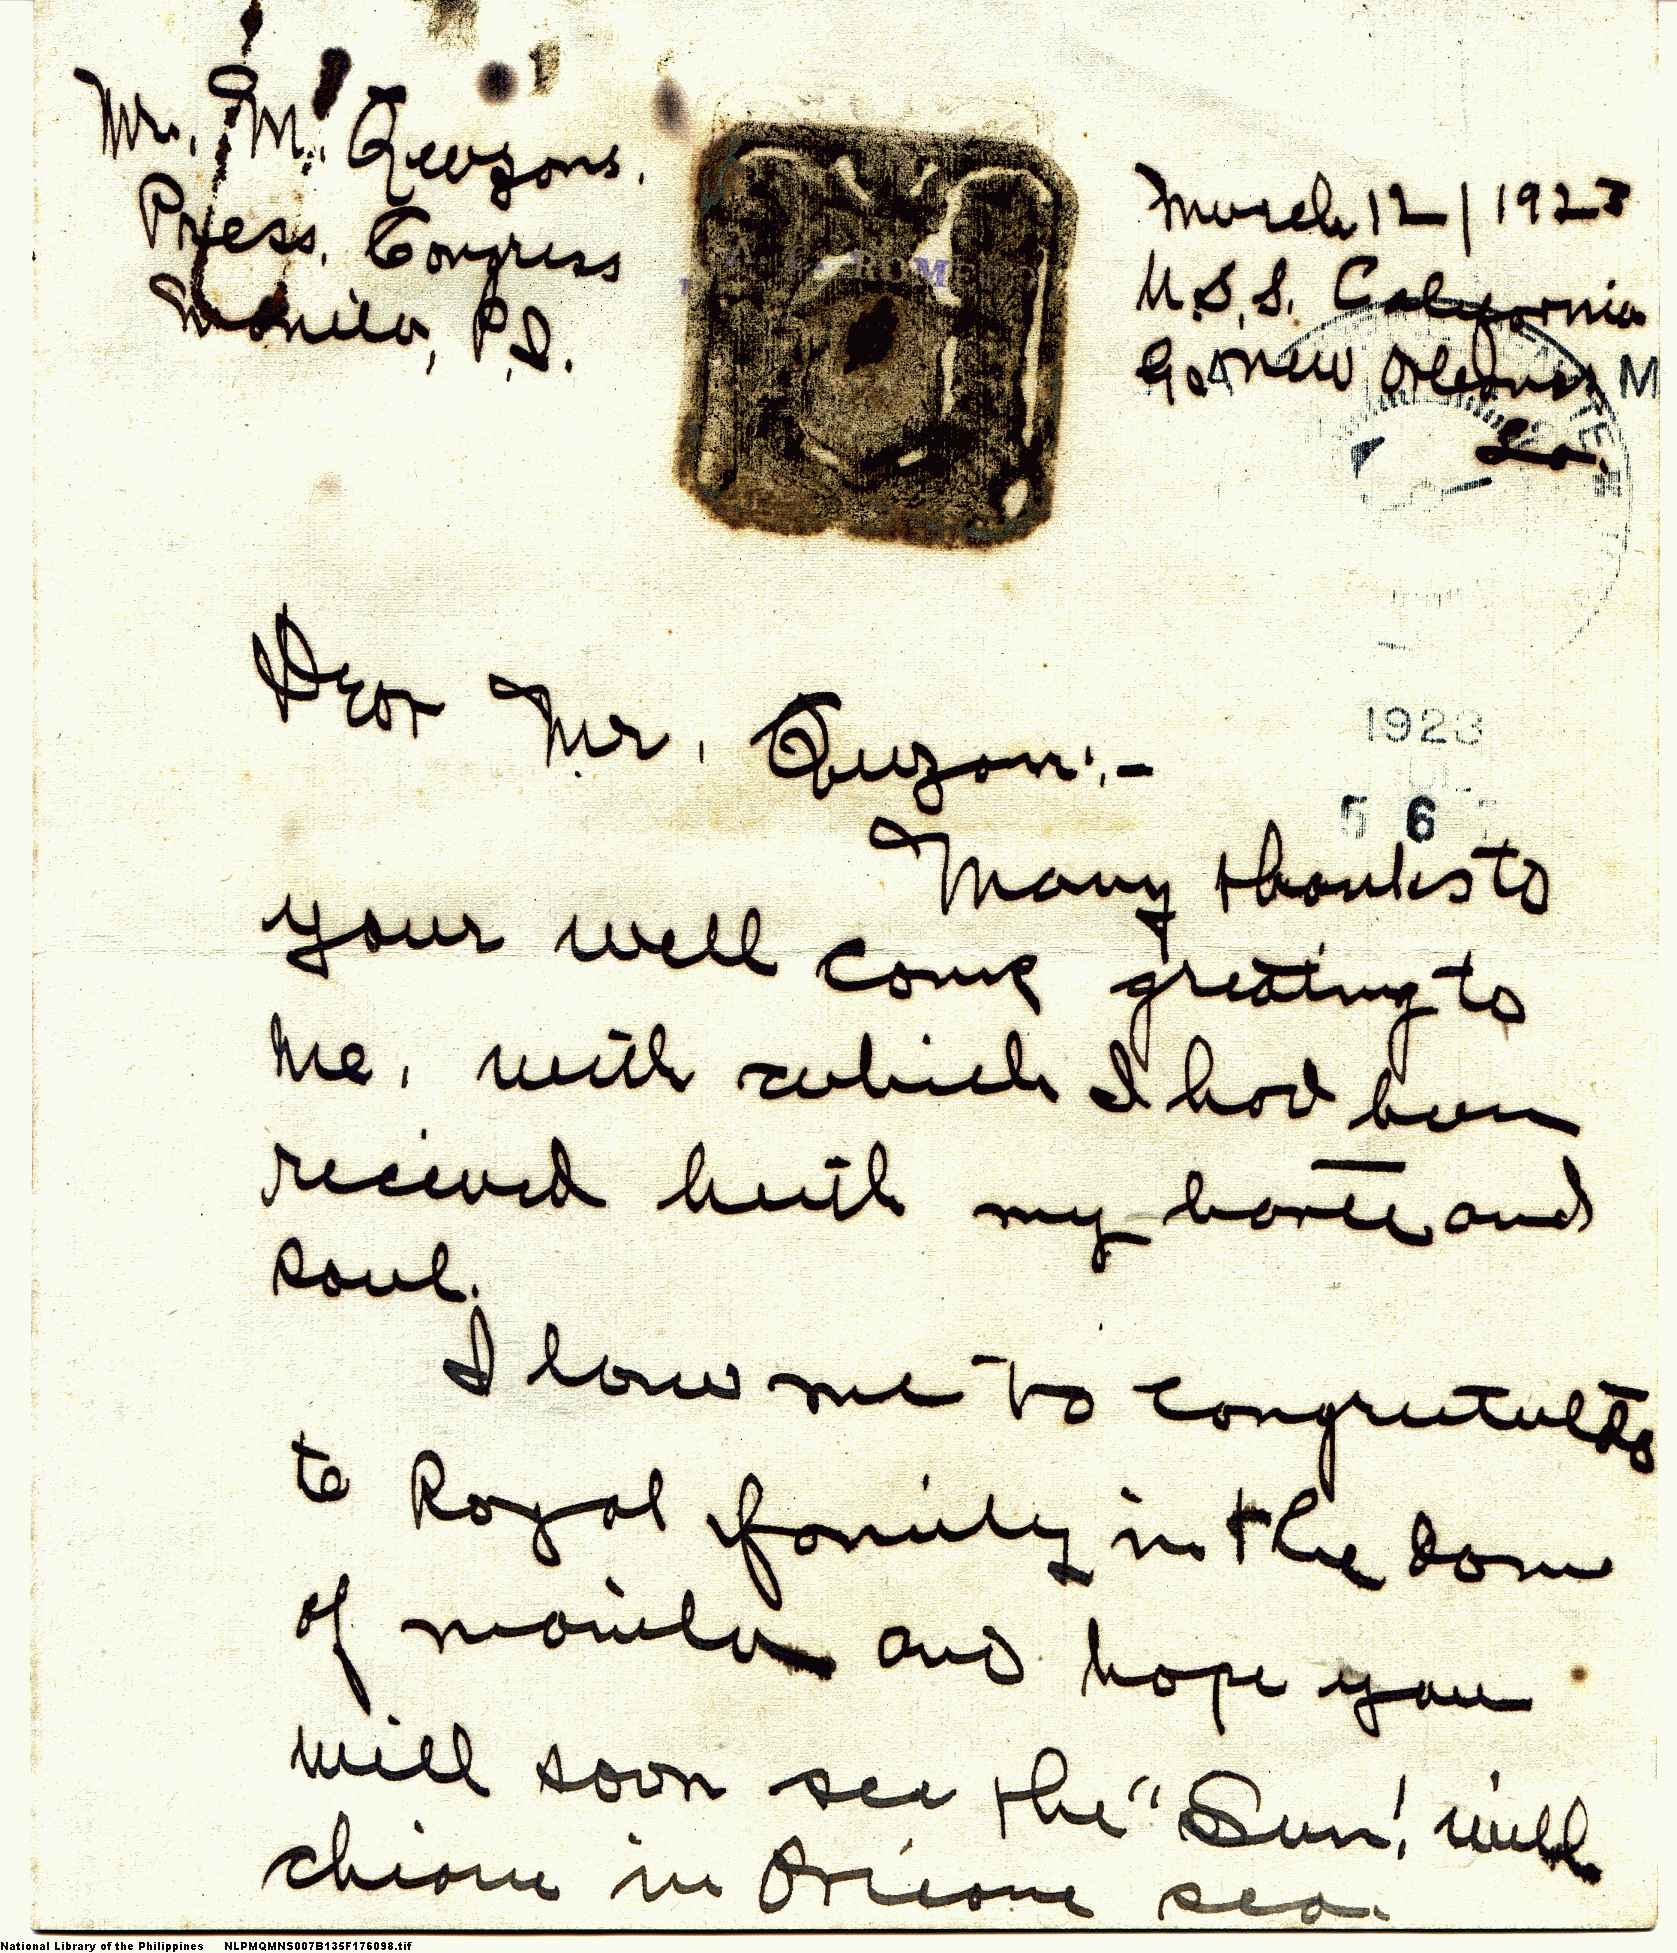 Mr. M. Qewzons.
Press. Congress
Manila, P.I.
March 12/1923
U.S.S. California
New Orleans
La.
ROME
M
1923
5 6
Dear Mr. Quzon:-
Many thanks to
your well come greating to
me, with which I had been
recieved with my harte and
soul.
I low me to congretulate
to Royal family in the dome
of manila and hope you
will soon see the "Sun! will
chione in Orieone sea.
National Library of the Philippines NLPMQMNS007B135F176098.tif